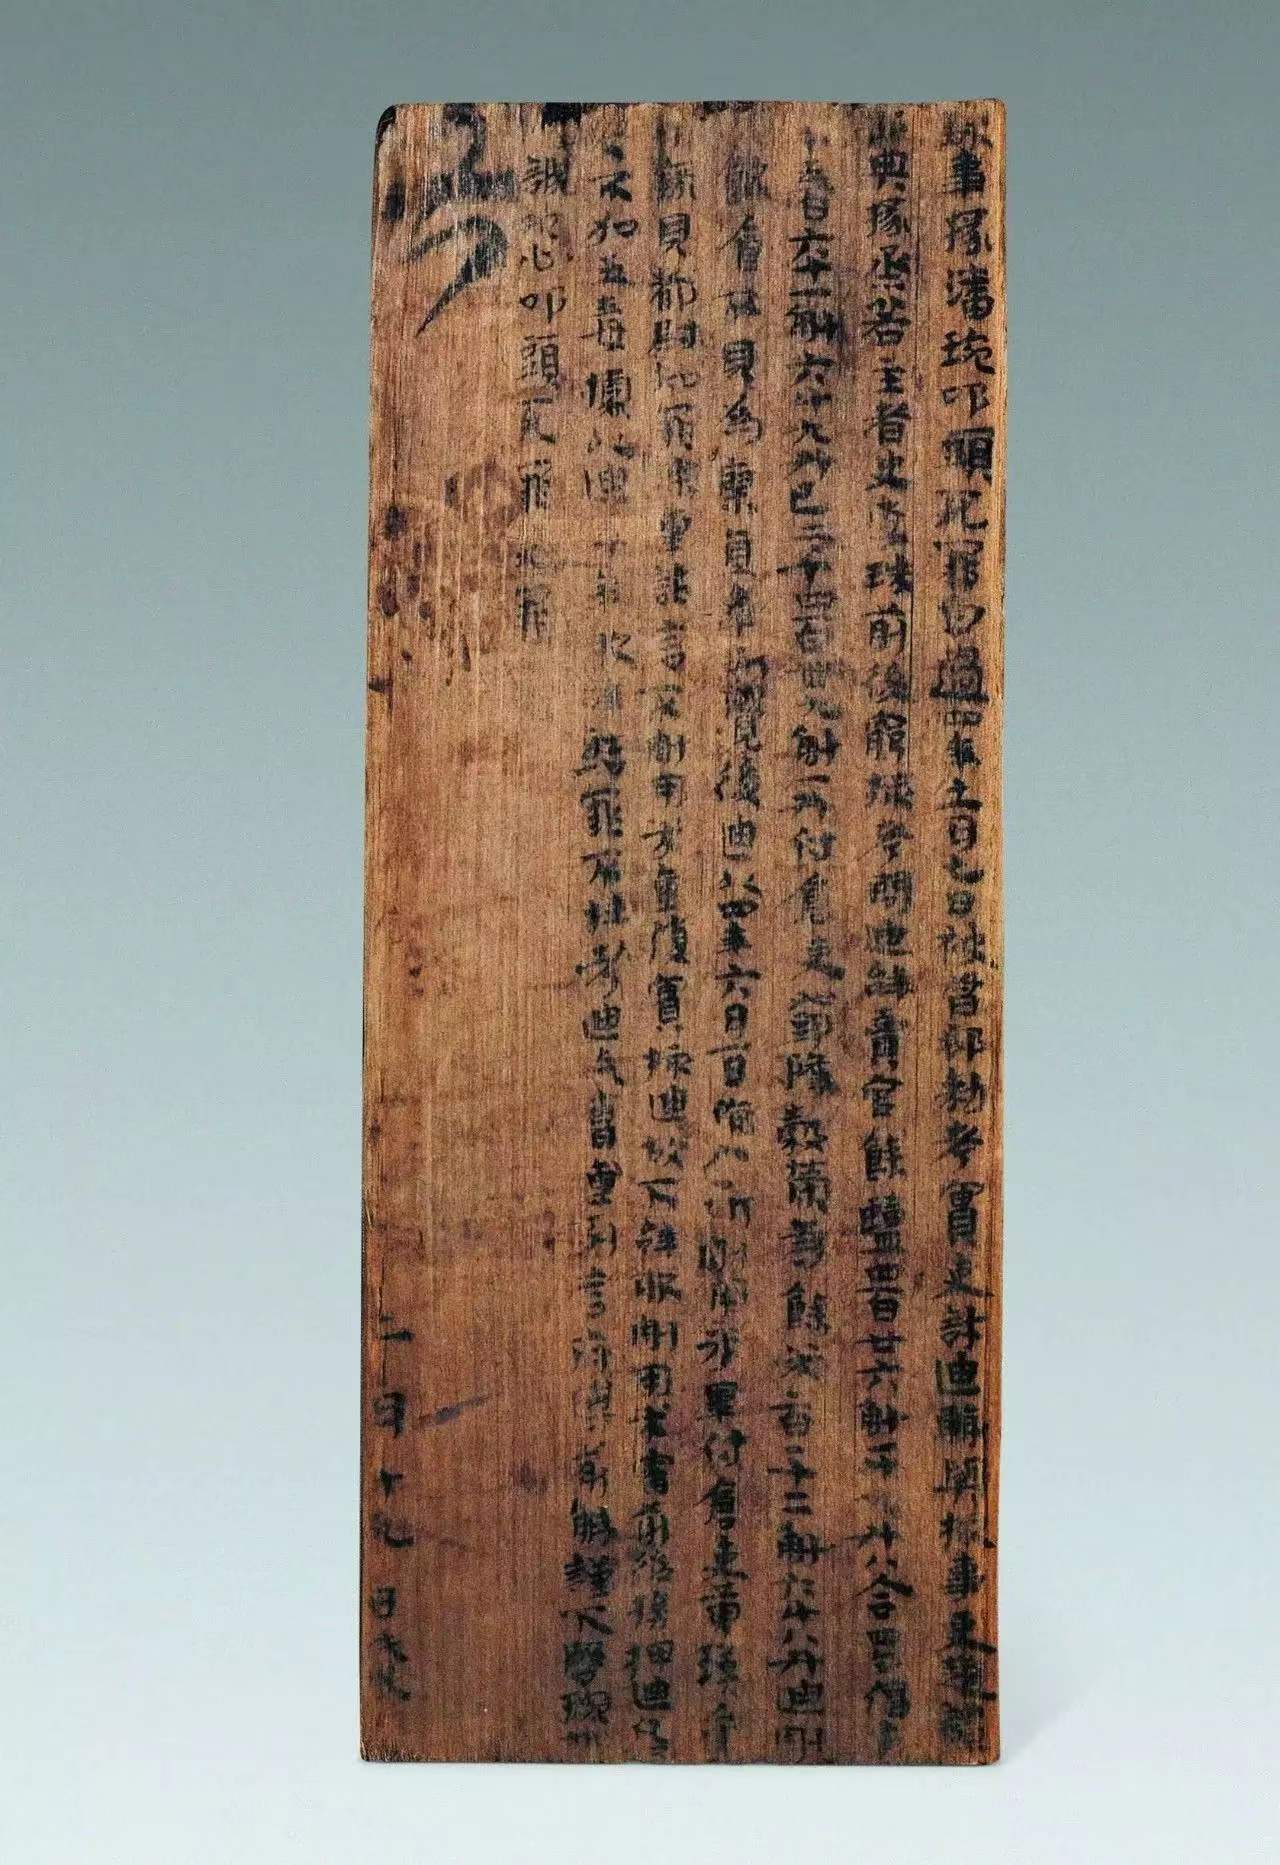 錄事掾潘琬叩頭死罪白過四年十一月七日被督郵敕考實吏許迪輒與核事吏趙譚
部典掾烝若主者史李珠前後窮核考問迪辭賣官餘鹽四百廿六斛一斗九升八合四勺偪米
二千五百六十一斛六斗九升已二千四百卌九斛一升付倉吏鄧隆穀榮等餘米一百一十二斛六斗八升迪割
用飲食不見為廖直事所覺後迪以四年六月一日偷入所割用米畢付倉吏黃瑛受
前錄見都尉知罪深重詣言不割用米重復實核迪故下辭服割用米審前後榜押迪凡
不加五毒據以迪服辭結罪不枉考迪乞曹重列言府傅前解謹下啟琬
誠恐叩頭死罪死罪
二月十九日戊戌